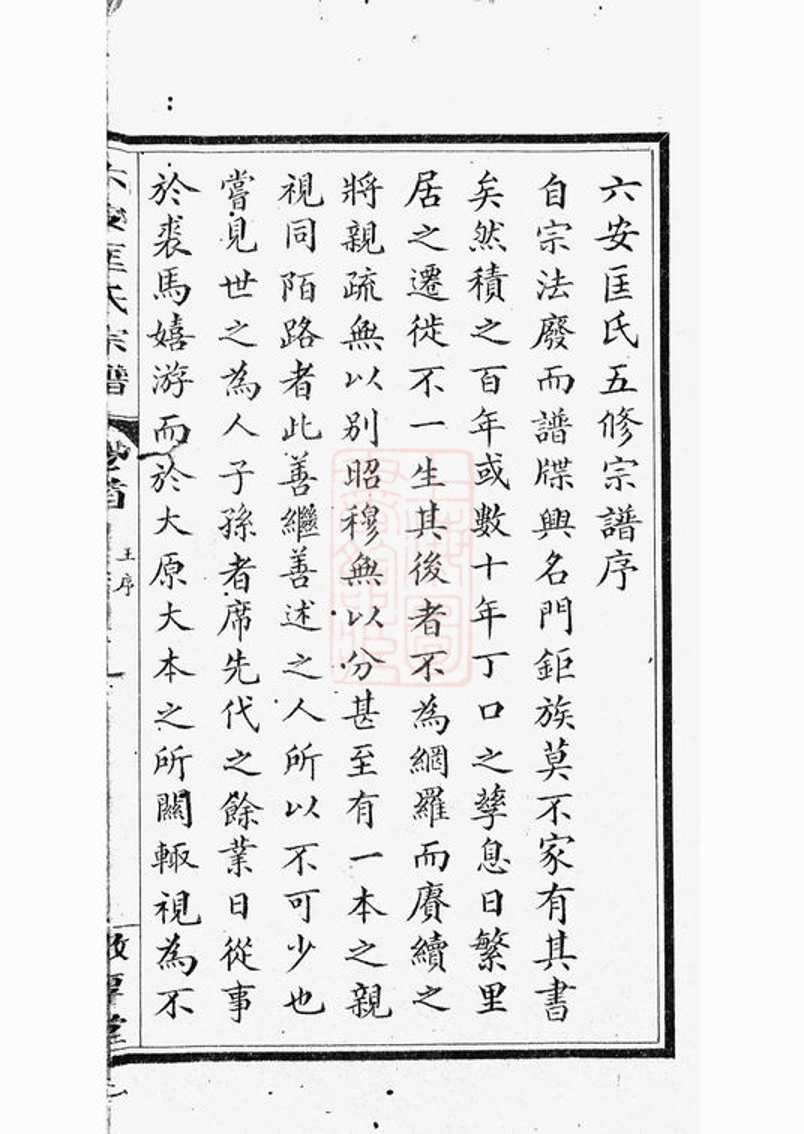 六安匡氏五修宗譜序
自宗法廢而譜牒興名門鉅族莫不家有其書
矣然積之百年或數十年丁口之孳息日繁里
居之遷徙不一生其後者不為網羅而賡續之
將親疏無以別昭穆無以分甚至有一本之親
視同陌路者此善繼善述之人所以不可少也
嘗見世之為人子孫者席先代之餘業日從事
於裘馬嬉游而於大原大本之所關輙視為不
六安匡氏宗譜
卷首
王序
敦厚堂